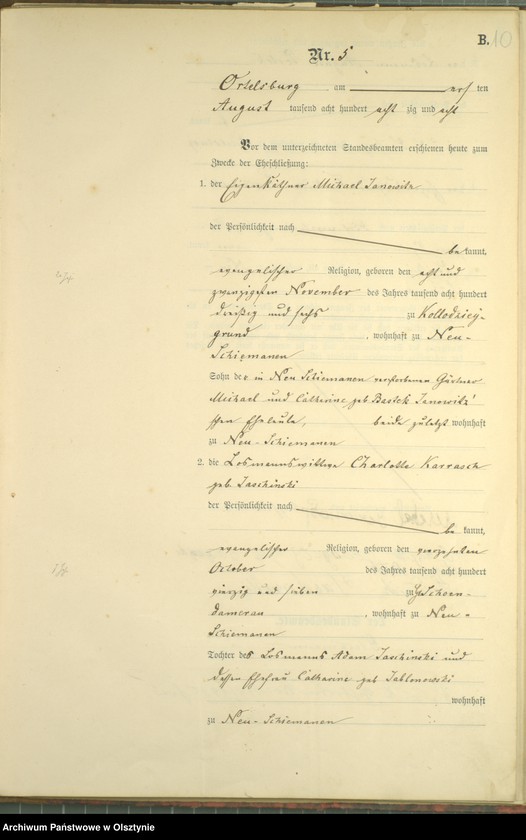 B. 10
Nr. 5
Ortelsburg am ersten
August tausend acht hundert acht zig und acht
Vor dem unterzeichneten Standesbeamten erschienen heute zum
Zwecke der Eheschließung:
1. der Eigenkäthner Michael Janowitz
der Persönlichkeit nach
be kannt,
evangelischer Religion, geboren den acht und
zwanzigsten November des Jahres tausend acht hundert
dreißig und sechs zu Kollodziey-
grund, wohnhaft zu Neu-
Schiemanen
Sohn der in Neu Schiemanen verstorbenen Gärtner
Michael und Catharine geb Bastek Janowitz'
schen Eheleute, beide zuletzt wohnhaft
zu Neu-Schiemanen
2. die Losmannswittwe Charlotte Karrasch
geb. Jaschinski
der Persönlichkeit nach
be kannt,
evangelischer Religion, geboren den vierzehnten
October des Jahres tausend acht hundert
vierzig und sieben zu Schoen-
damerau, wohnhaft zu Neu-
Schiemanen
Tochter des Losmanns Adam Jaschinski und
dessen Ehefrau Catharine geb Jablonowski
wohnhaft
zu Neu-Schiemanen
Archiwum Państwowe w Olsztynie